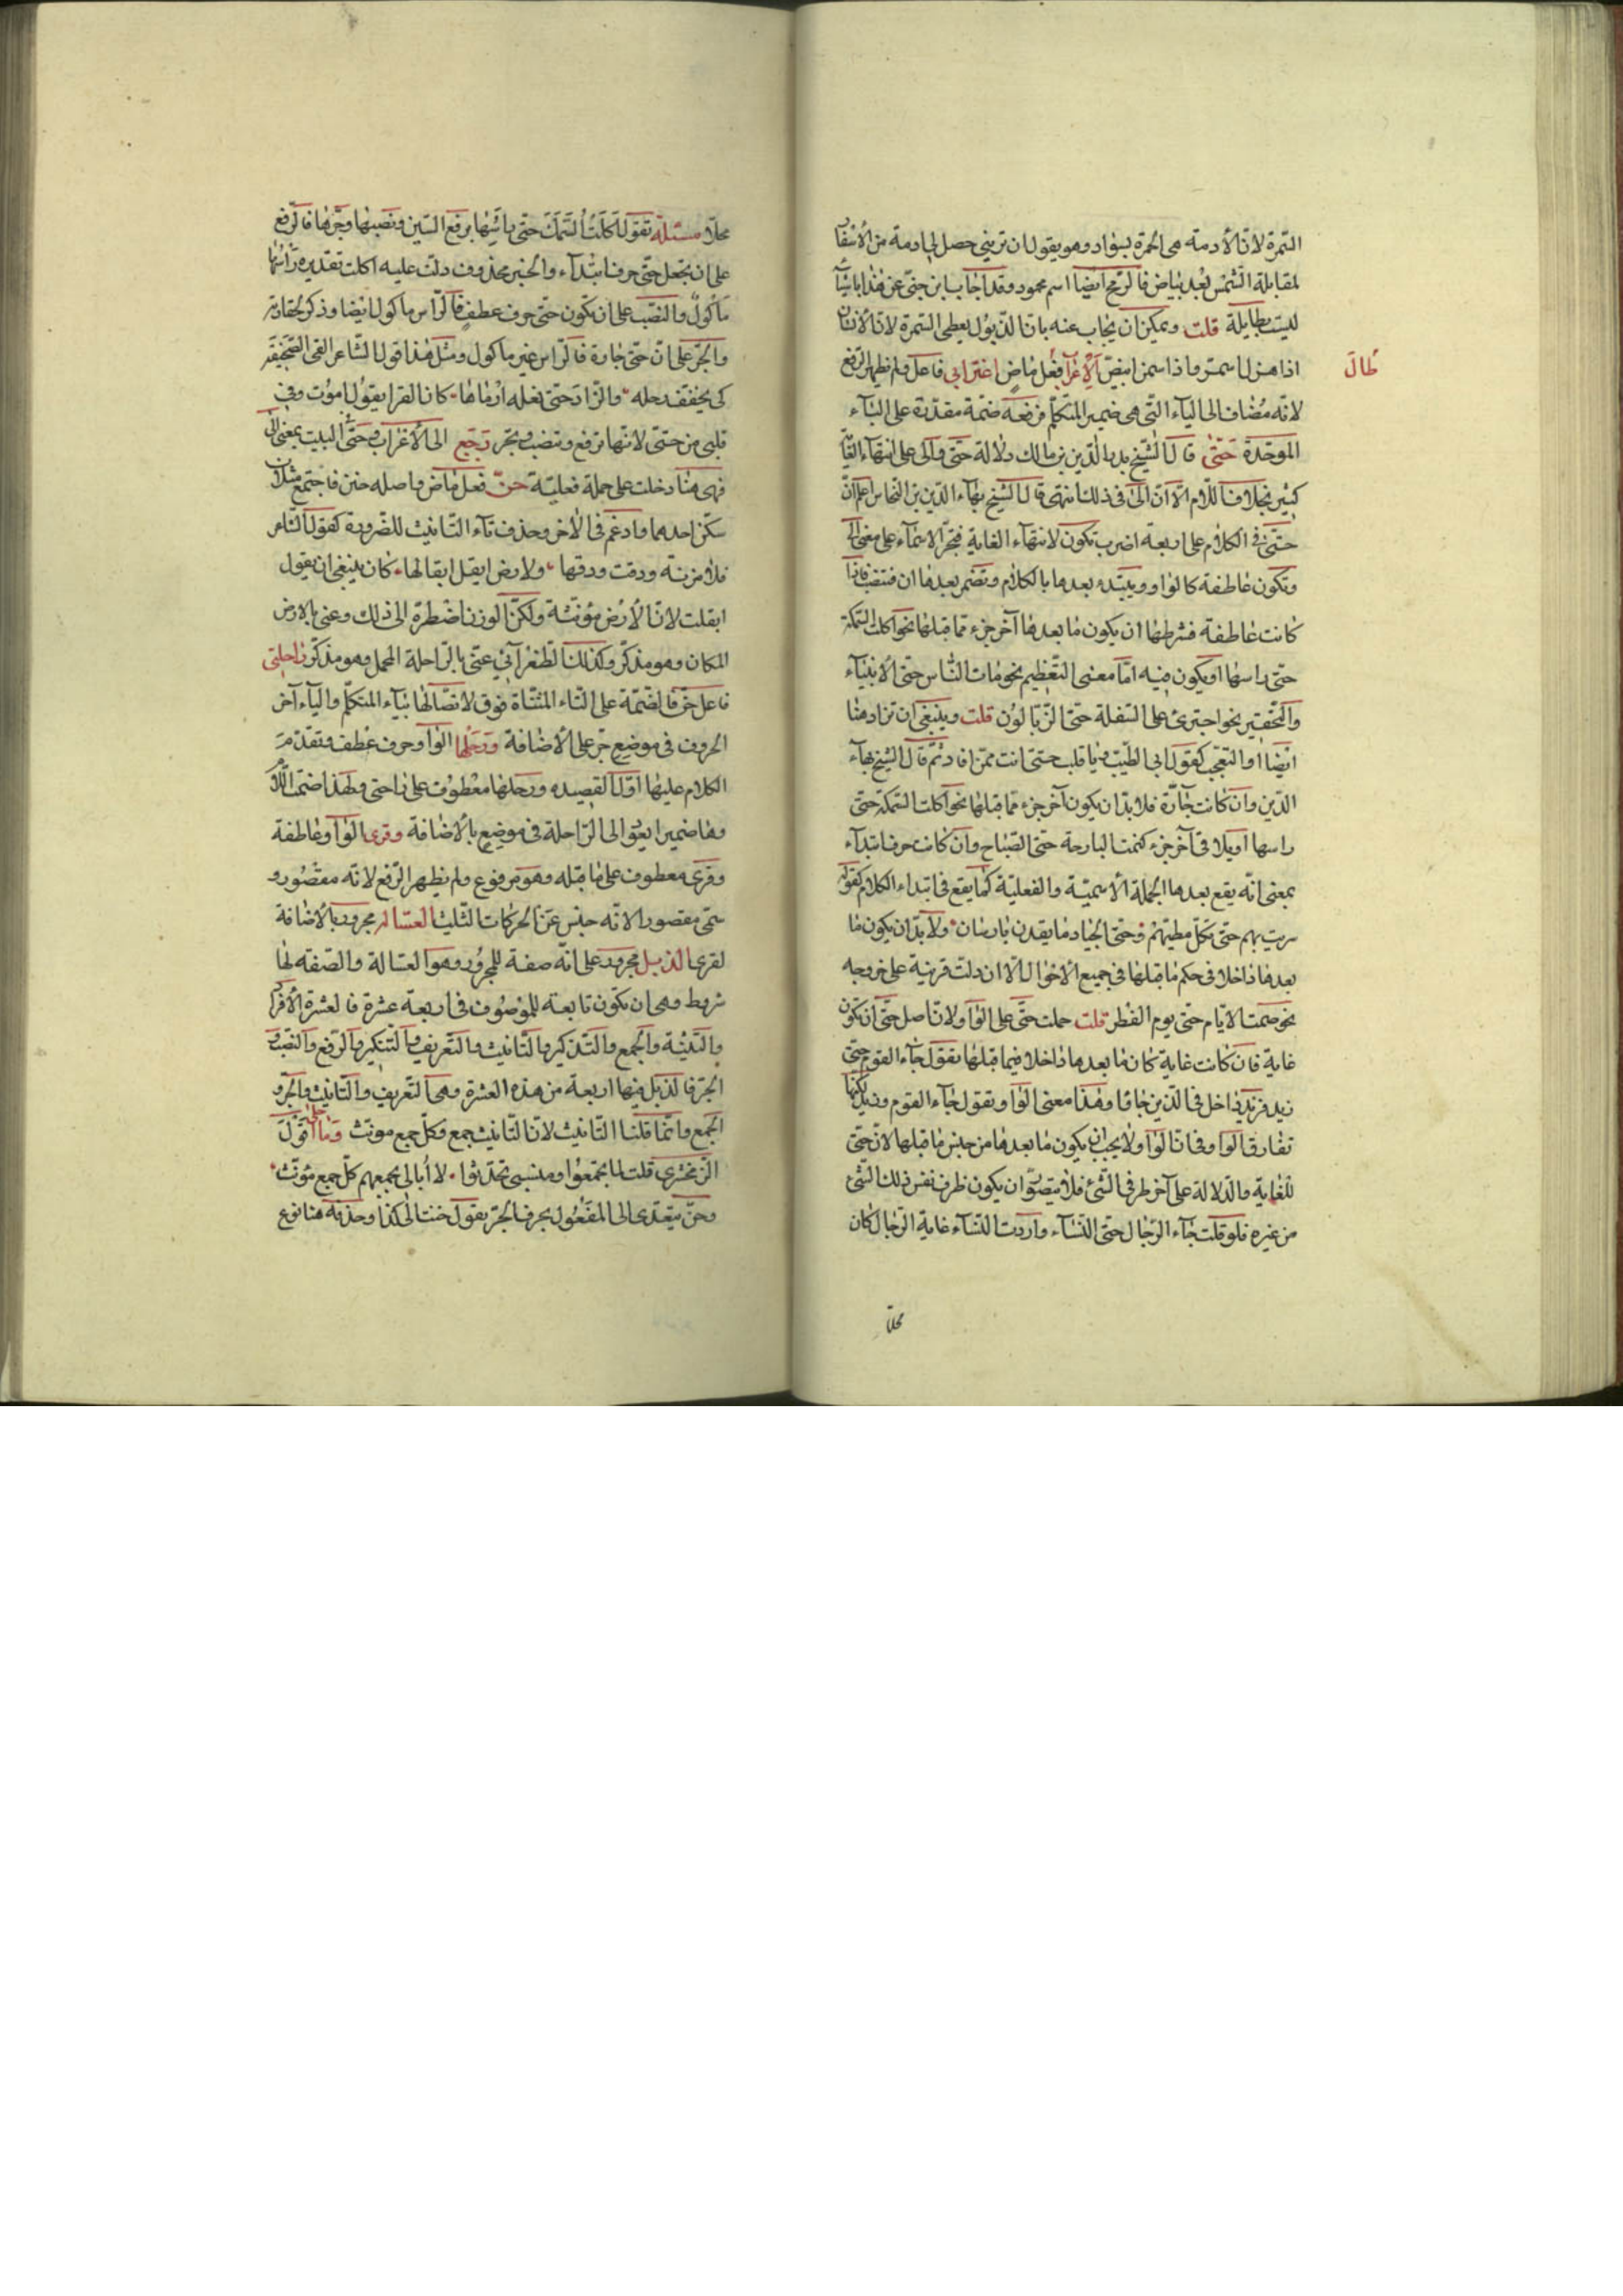 السمرة لان الأدمة هى الحمرة بسواد وهو يقول ان تربنى حصل لى ادمة من الأسفا
لمقابلة الشمس بعد بياض فالرمح ايضا اسم محمود وقد اجاب ابن جنى عن هذا باشيآ
ليست بطايلة قلت ويمكن ان يجاب عنه بان الذبول يعطى السمرة لان الأنسان
اذا هزل اسمر واذا سمن ابيض الإعراب فعل ماض اغترابى فاعل ولم يظهر الرفع
طال
لانه مضاف الى اليآء التى هى ضمير المتكلم فرفعه ضمة مقدرة على البآء
الموحدة حتى قال الشيخ بدر الدين بن مالك دلالة حتى والى على انتهآء الغاية
كثير بخلاف اللام الا ان الى فى ذلك انتهى قال الشيخ بهآء الدين بن النحاس اعلم ان
حتى فى الكلام على اربعة اضرب تكون لانتهآء الغاية فتجر الاسمآء على معنى الى
وتكون عاطفة كالواو ويبتدء بعدها بالكلام وتضمر بعدها ان فتنصب فاذا
كانت عاطفة فشرطها ان يكون ما بعدها آخر جزء مما قبلها نحو اكلت السمكة
حتى راسها او يكون فيه اما معنى التعظيم نحو مات الناس حتى الأنبيآء
والتحقير نحو اجترئ على السفلة حتى الزبالون قلت وينبغى ان تزاد هنا
ايضا او التعجب كقول ابى الطيب يا قلب حتى انت ممن افارق ثم قال الشيخ بهآء
الدين وان كانت جآرة فلا بد ان يكون آخر جزء مما قبلها نحو اكلت السمكة حتى
راسها او يلاقى آخر جزء كنمت البارحة حتى الصباح وان كانت حرف ابتدآء
بمعنى انه يقع بعدها الجملة الأسمية والفعلية كما يقع فى ابتداء الكلام كقوله
سريت بهم حتى تكل مطيهم وحتى الجياد ما يقدن بارسان ولا بد ان يكون ما
بعدها داخلا فى حكم ما قبلها فى جميع الأحوال الا ان دلت قرينة على خروجه
نحو صمت الايام حتى يوم الفطر قلت حملت حتى على الواو ولان اصل حتى ان تكون
غاية فان كانت غاية كان ما بعدها داخلا فيما قبلها تقول جآء القوم حتى
زيد فزيد داخل فى الذين جاؤا وهذا معنى الواو تقول جآء القوم وزيد لكنها
تفارق الواو فى ان الواو ولا يجب ان يكون ما بعدها من جنس ما قبلها لان حتى
للغاية والدلالة على آخر طرفى الشئ فلا يتصور ان يكون طرف نفس ذلك الشئ
من غيره فلو قلت جآء الرجال حتى النسآء واردت النسآء غاية الرجال كان
محلا
محلا مسئلة تقول اكلت السمك حتى راسها برفع السين ونصبها وجرها فالرفع
على ان تجعل حتى حرف ابتدآء والخبر محذوف دلت عليه اكلت تقديره راسها
ماكول والنصب على ان تكون حتى حرف عطف فالراس ماكول ايضا وذكر لحقارته
والجر على ان حتى جارة فالراس غير ماكول ومثل هذا قول الشاعر القى الصحيفة
كى يخفف رحله والزاد حتى نعله القاها كان الفرا يقول اموت وفى
قلبى من حتى لانها ترفع وتنصب وتجر رجع الى الأعراب وحتى البيت بمعنى الى
فهى هنا دخلت على جملة فعلية حن فعل ماض واصله حنن فاجتمع مثلان
سكن احدهما وادغم فى الأخر وحذف تآء التانيث للضرورة كقول الشاعر
فلا مزنة ودقت ودقها ولا ارض ابقل ابقالها كان ينبغى ان يقول
ابقلت لان الأرض مؤنثة ولكن الوزن اضطره الى ذلك وعنى بالارض
المكان وهو مذكر وكذلك الطغرآئى عنى بالراحلة المحمل وهو مذكر راحلتى
فاعل حن فالضمة على التاء المثناة فوق لاتصالها بيآء المتكلم واليآء آخر
الحروف فى موضع جر على الأضافة ورحلها الواو حرف عطف وتقدم
الكلام عليها اول القصيده ورحلها معطوف على راحتى ولهذا ضمت اللام
وها ضمير يعود الى الراحلة فى موضع بالأضافة وقرى الواو عاطفة
وقرى معطوف على ما قبله وهو مرفوع ولم يظهر الرفع لانه مقصور و
سمى مقصورا لانه حبس عن الحركات الثلث العسالة مجرور بالأضافة
لقرى الذبل مجرور على انه صفة للمجرور وهو العسالة والصفه لها
شروط وهى ان تكون تابعة للموصوف فى اربعة عشرة فالعشرة الأفراد
والتثنية والجمع والتذكير والتانيث والتعريف والتنكير والرفع والنصب و
الجر فالذبل فيها اربعة من هذه العشرة وهى التعريف والتانيث والجر و
الجمع وانما قلنا التانيث لان التانيث جمع وكل جمع مونث وما احلى قول
الزمخشرى قلت لما تجمعوا وبنسبى تحدثوا لا أبالى بجمعهم كل جمع مؤنث
وحن يتعدى الى المفعول بحرف الجر تقول حننت الى كذا وحذفه هنا نوع